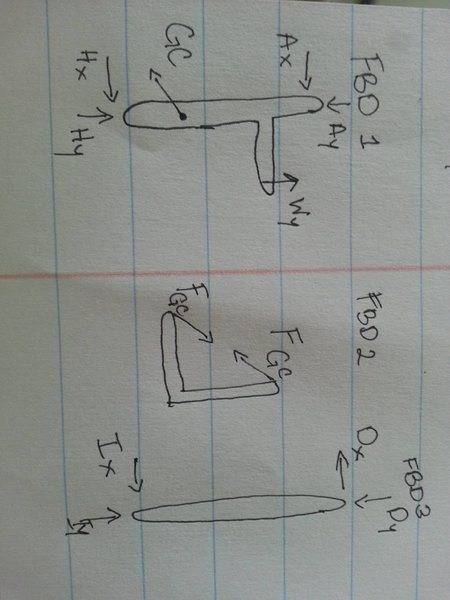 FBD 1
Ax
Ay
GC
Wy
Hx
Hy
FBD 2
FGC
FGC
FBD3
Dx
Dy
Ix
Iy